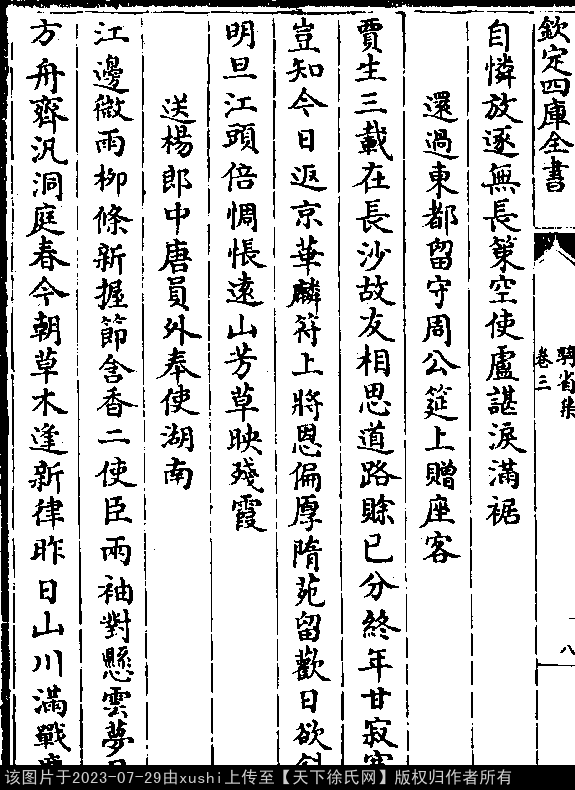 欽定四庫全書
騎省集
卷三
八
自憐放逐無長策空使盧諶淚滿裾
還過東都留守周公筵上贈座客
賈生三載在長沙故友相思道路賖已分終年甘寂
豈知今日返京華麟符上將恩偏厚隋苑留歡日欲斜
明旦江頭倍惆悵遠山芳草映殘霞
送楊郎中唐員外奉使湖南
江邊微雨栁條新握節含香二使臣兩袖對懸雲夢
方舟齊汎洞庭春今朝草木逢新律昨日山川滿戰
该图片于2023-07-29由xushi上传至【天下徐氏网】版权归作者所有